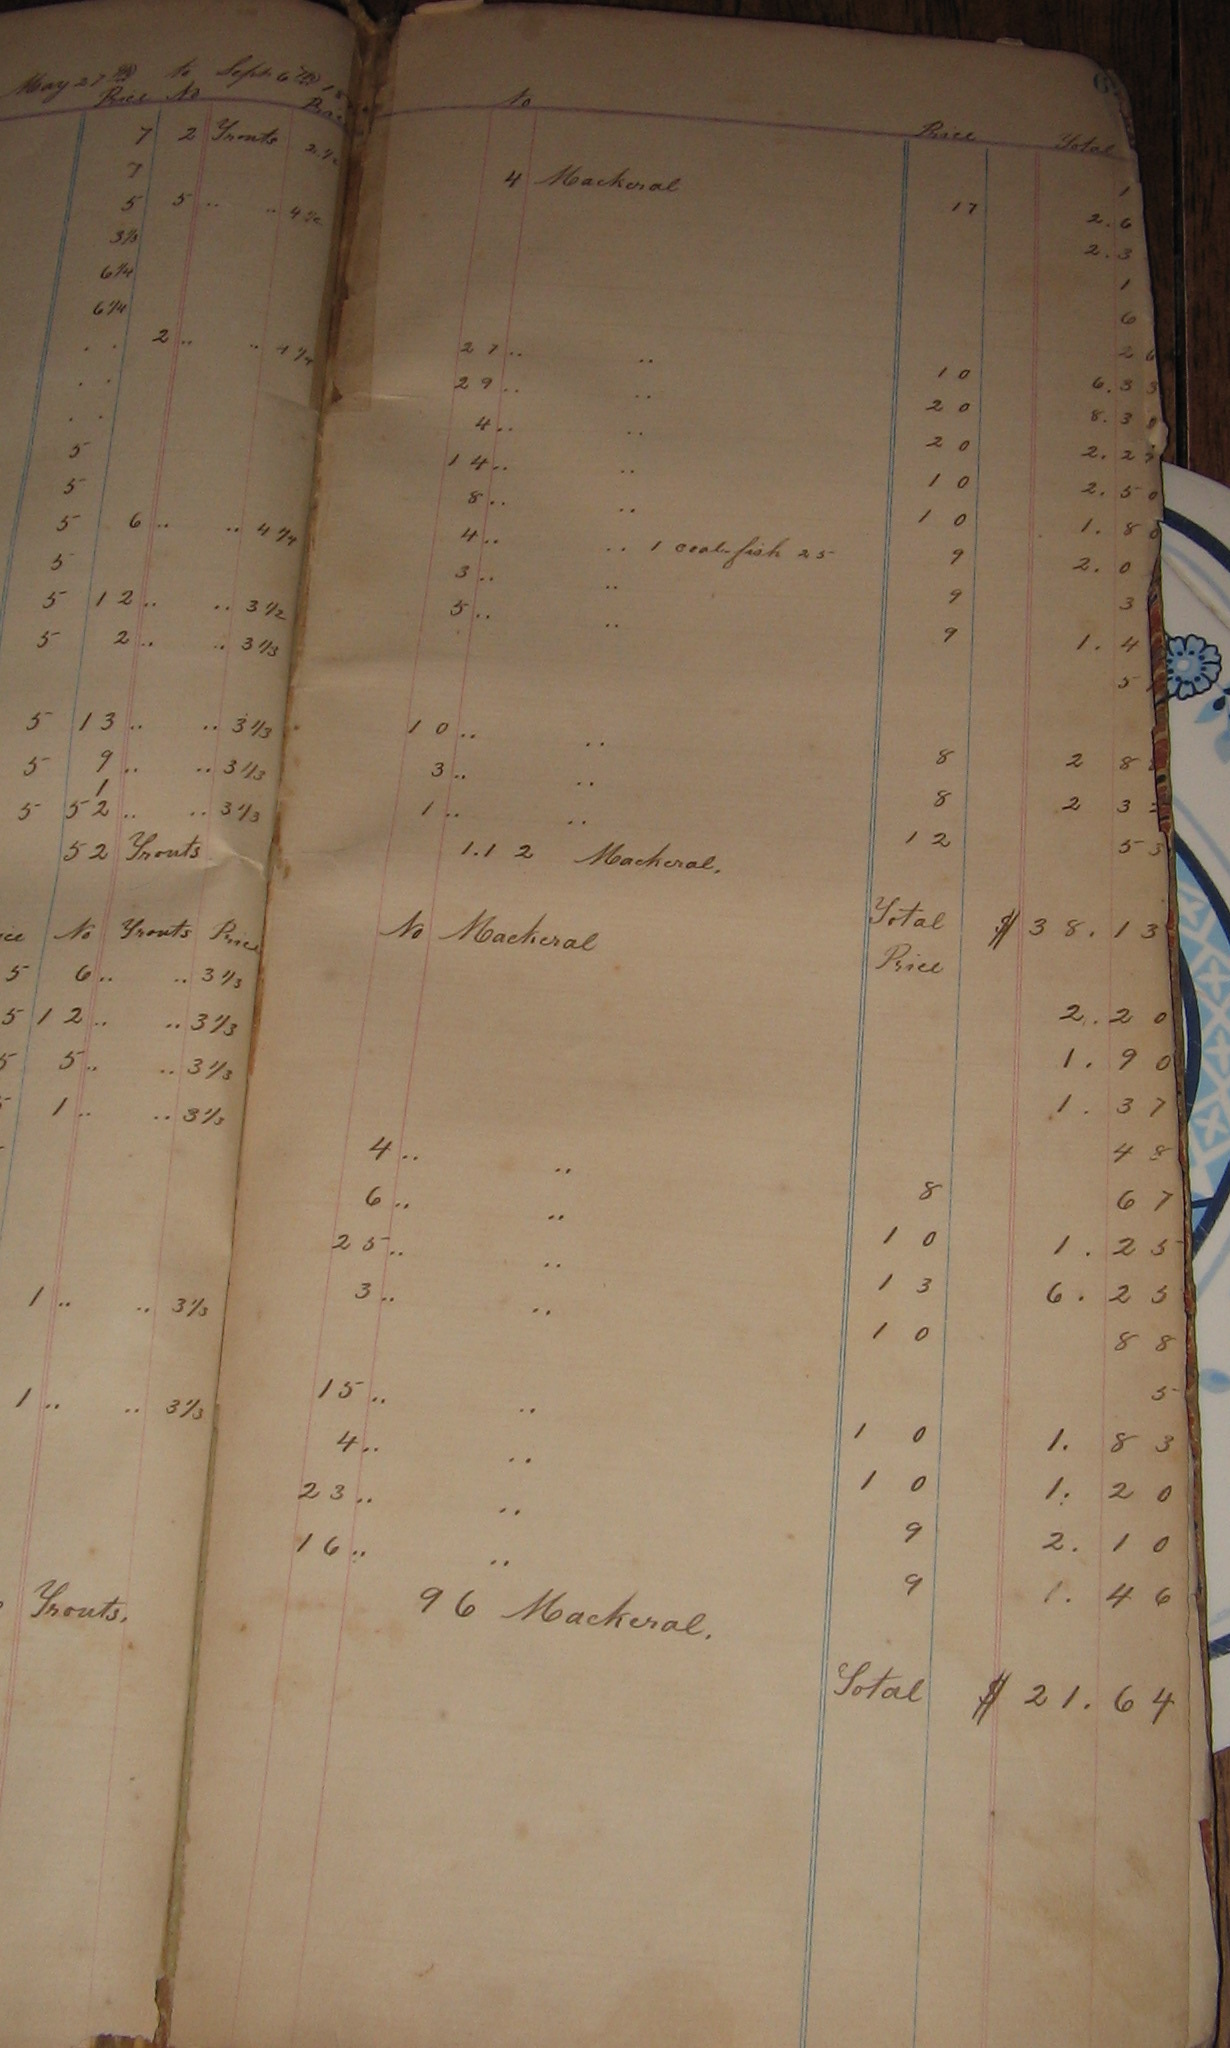 May 27th to Sept 6th 18
Price No Price
7 2 Trouts 2 1/2
7
5 5 .. .. 4 1/2
3 1/3
6 1/4
6 1/4
. . 2 .. .. 4 1/4
. .
. .
5
5
5 6 .. .. 4 1/4
5
5 12 .. .. 3 1/2
5 2 .. .. 3 1/3
5 13 .. .. 3 1/3
5 9 .. .. 3 1/3
1
5 52 .. .. 3 1/3
52 Trouts
ice No Trouts Price
5 6 .. .. 3 1/3
5 12 .. .. 3 1/3
5 5 .. .. 3 1/3
5 1 .. .. 3 1/3
1 .. .. 3 1/3
1 .. .. 3 1/3
Trouts.
No Price Total
4 Mackeral 1
17 2.6
2.3
1
6
27 .. .. 26
29 .. .. 10 6.33
4 .. .. 20 8.3
14 .. .. 20 2.2
8 .. .. 10 2.50
4 .. .. 1 coal-fish 25 10 1.8
3 .. .. 9 2.0
5 .. .. 9 3
9 1.4
5
10 .. ..
3 .. .. 8 2 8
1 .. .. 8 2 3
1.12 Mackeral. 12 53
Total $38.13
No Mackeral Price
2.20
1.90
1.37
4 .. .. 48
6 .. .. 8 67
25 .. .. 10 1.25
3 .. .. 13 6.25
10 88
15 .. .. 5
4 .. .. 10 1.83
23 .. .. 10 1.20
16 .. .. 9 2.10
96 Mackeral. 9 1.46
Total $21.64